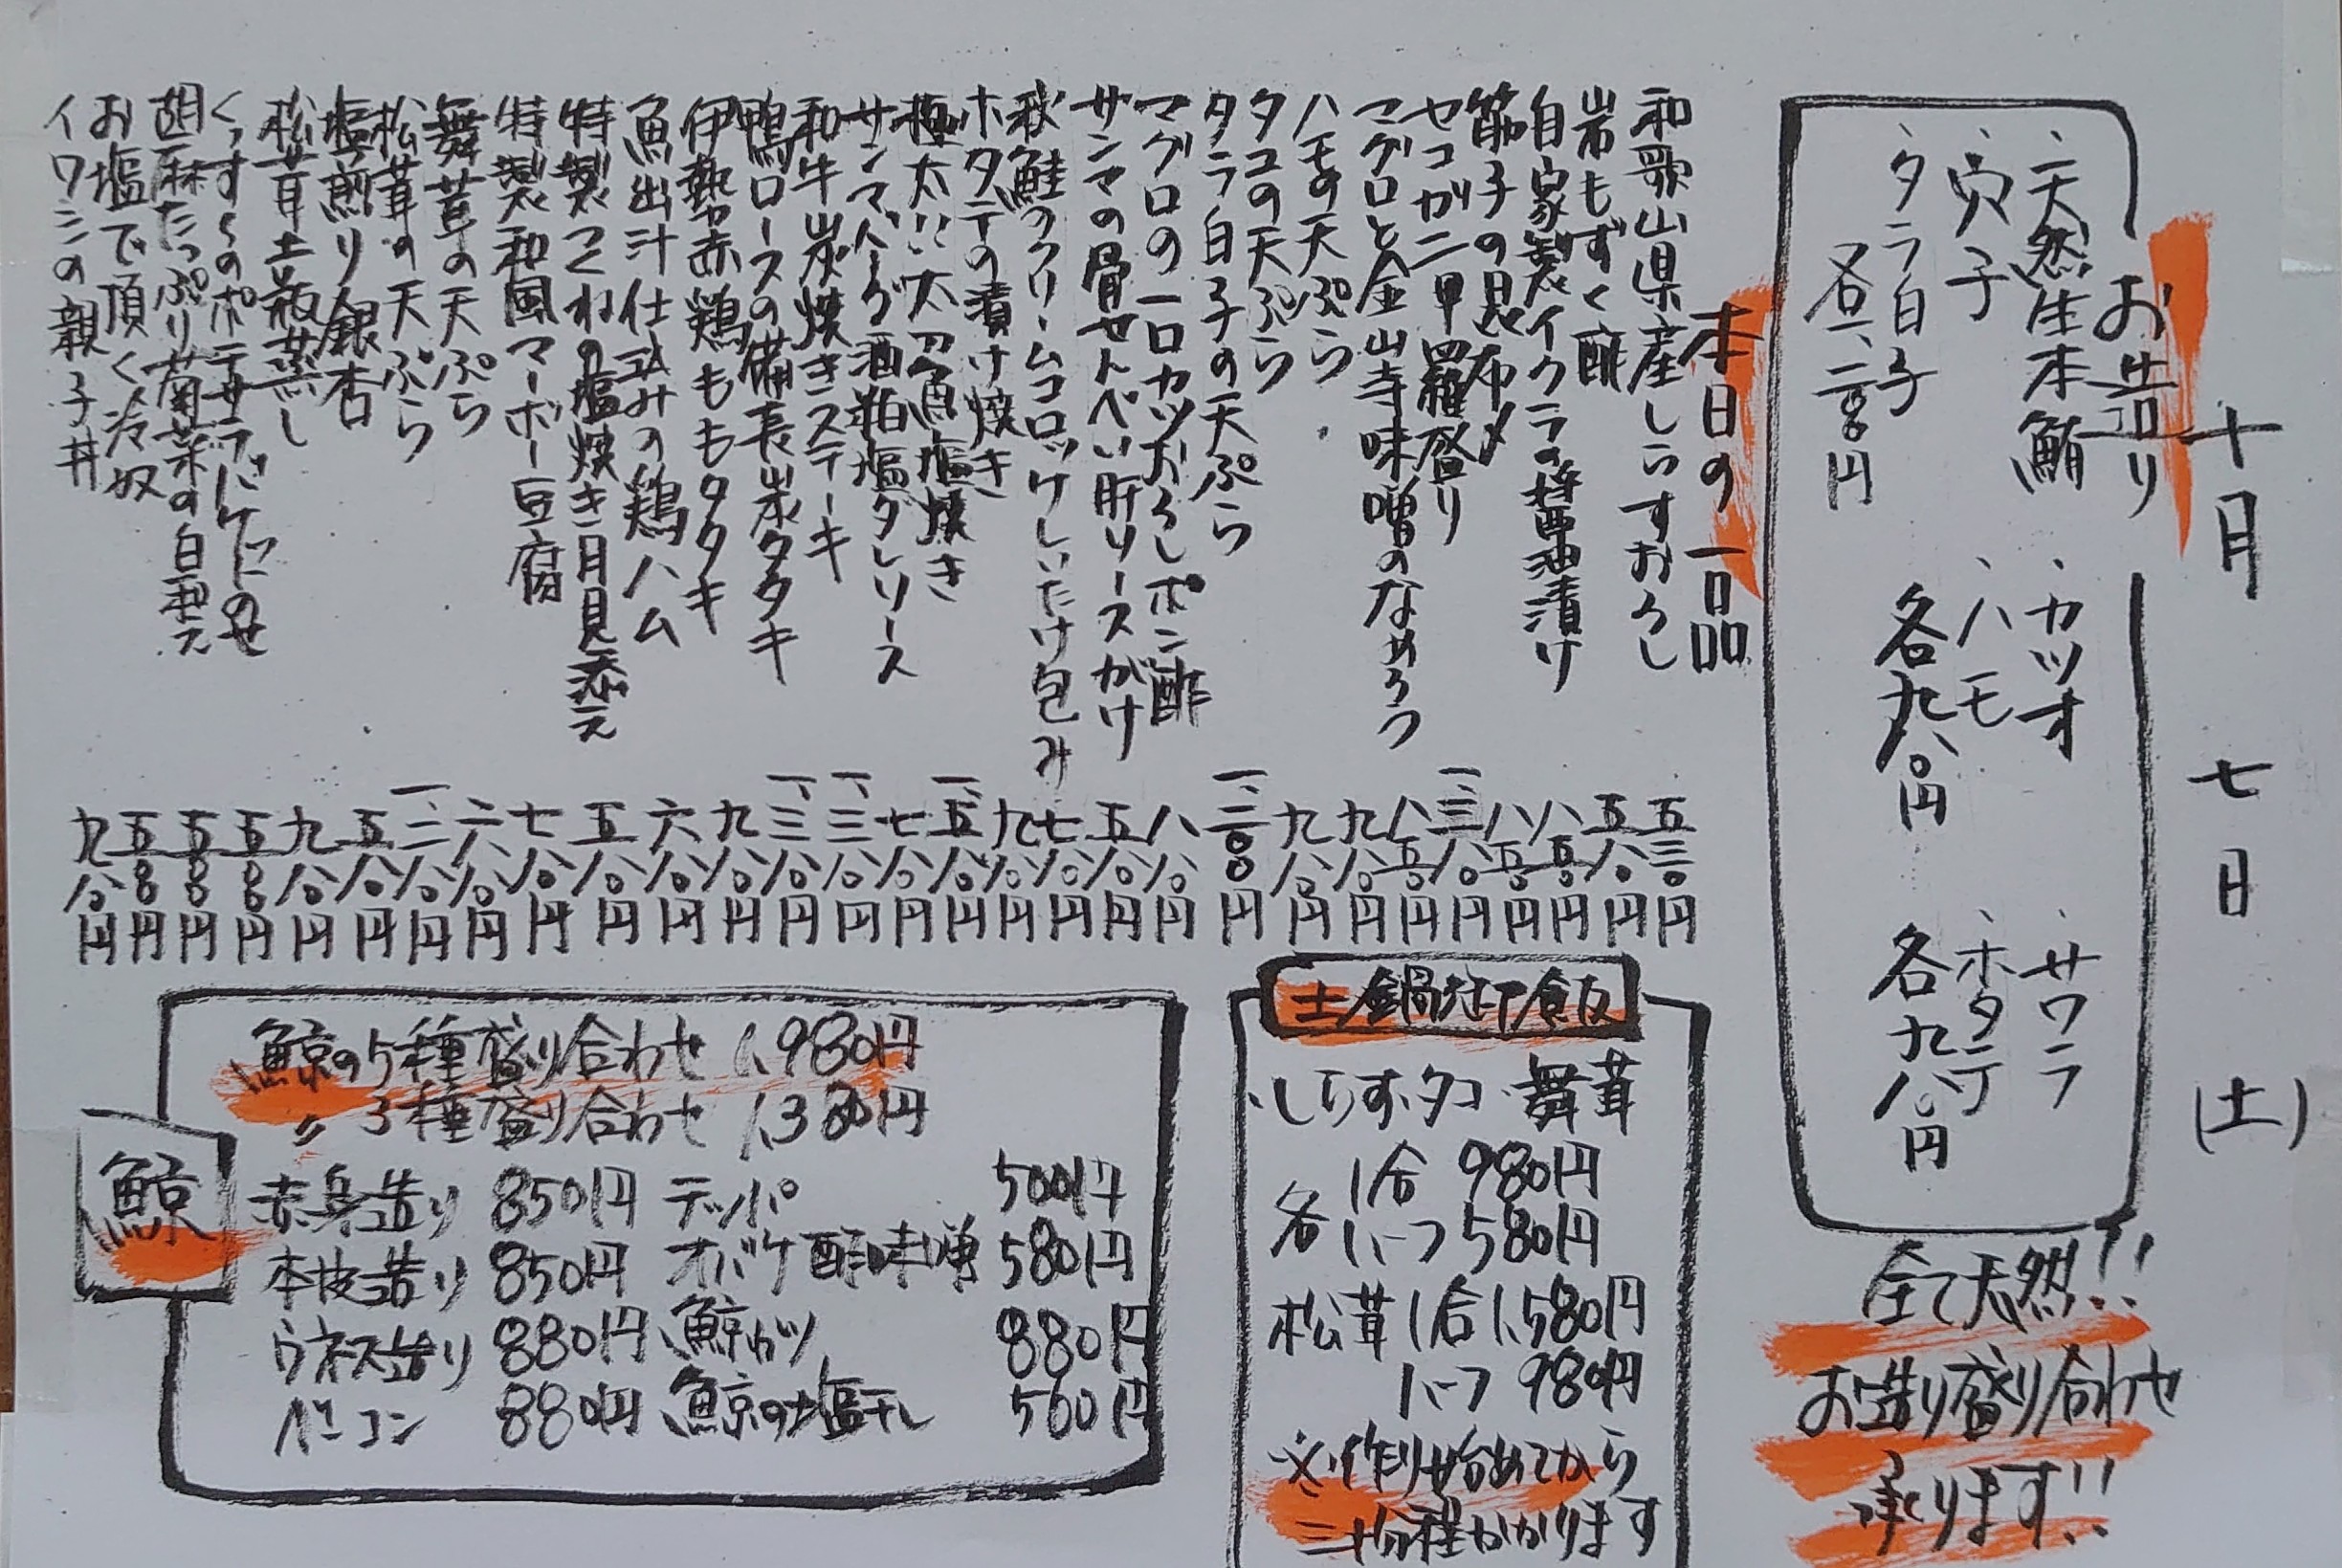 十月七日(土)
お造り
・天然生本鮪
・穴子
・タラ白子
各一、二〇〇円
・カツオ
・ハモ
各九八〇円
・サワラ
・ホタテ
各九八〇円
全て天然!!
お造り盛り合わせ
承ります!!
本日の一品
和歌山県産しらすおろし 五三〇円
岩もずく酢 五八〇円
自家製イクラの醤油漬け 八五〇円
筋子の昆布〆 八五〇円
セコガニ甲羅盛り 一、三八〇円
マグロと金山寺味噌のなめろう 八五〇円
ハモの天ぷら 九八〇円
タコの天ぷら 九八〇円
タラ白子の天ぷら 一、二〇〇円
マグロの一口カツおろしポン酢 八八〇円
サンマの骨せんべい肝ソースがけ 五八〇円
秋鮭のクリームコロッケしいたけ包み 七八〇円
ホタテの漬け焼き 九八〇円
極太!!太刀魚塩焼き 一、五八〇円
サンマバーグ酒粕塩ダレソース 七八〇円
和牛炭焼きステーキ 一、三八〇円
鴨ロースの備長炭タタキ 一、三八〇円
伊勢赤鶏ももタタキ 九八〇円
魚出汁仕込みの鶏ハム 六八〇円
特製つくねの塩焼き月見添え 五八〇円
特製和風マーボー豆腐 七八〇円
舞茸の天ぷら 六八〇円
松茸の天ぷら 一、二八〇円
塩煎り銀杏 五八〇円
松茸土瓶蒸し 九八〇円
くっすくのポテサラバゲットのせ 五五〇円
胡麻たっぷり菊菜の白和え 五五〇円
お塩で頂く冷奴 五五〇円
イワシの親子丼 九八〇円
土鍋炊き御飯
・しらす・タコ・舞茸
各 1合 980円
ハーフ 580円
松茸 1合 1,580円
ハーフ 980円
※作り始めてから
三十分程かかります
鯨
鯨の5種盛り合わせ 1,980円
〃 3種盛り合わせ 1,380円
赤身造り 850円 テッパ 500円
本皮造り 850円 オバケ酢味噌 580円
ウネス造り 880円 鯨カツ 880円
ベーコン 880円 鯨の塩干し 560円